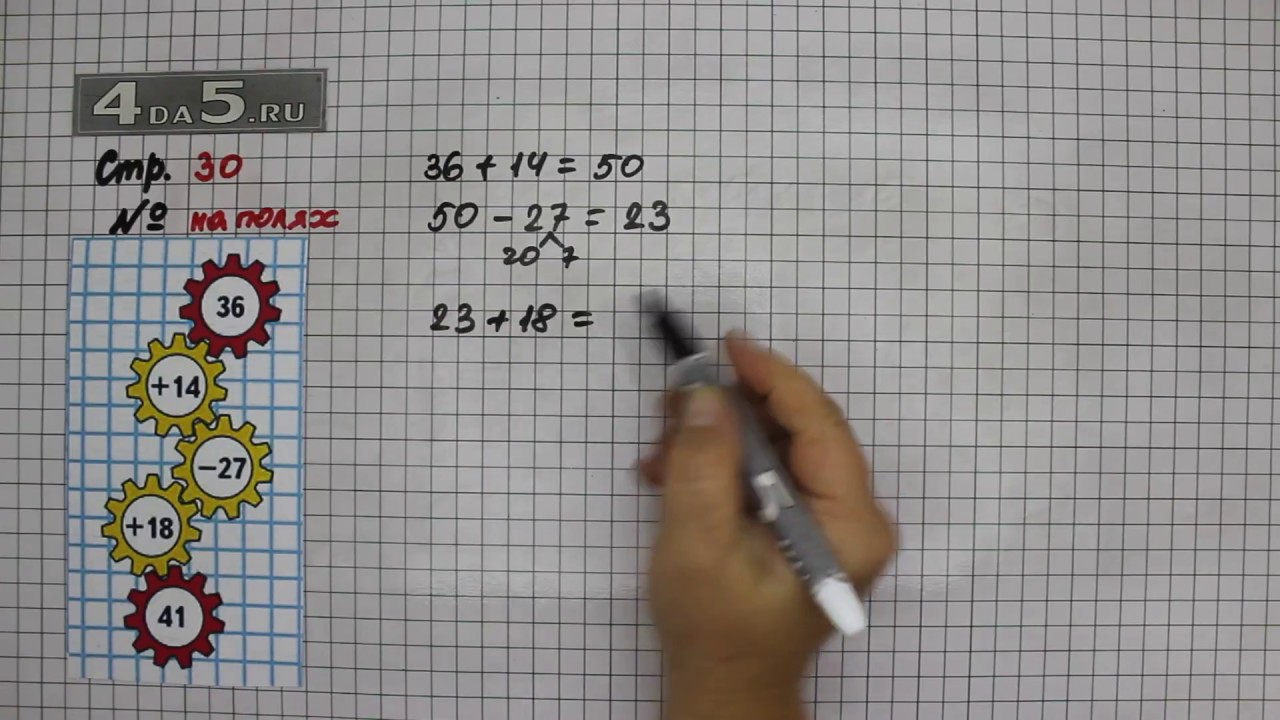 4DA5.RU
Стр. 30
№ на полях
36 + 14 = 50
50 - 27 = 23
20 7
23 + 18 =
36
+14
−27
+18
41